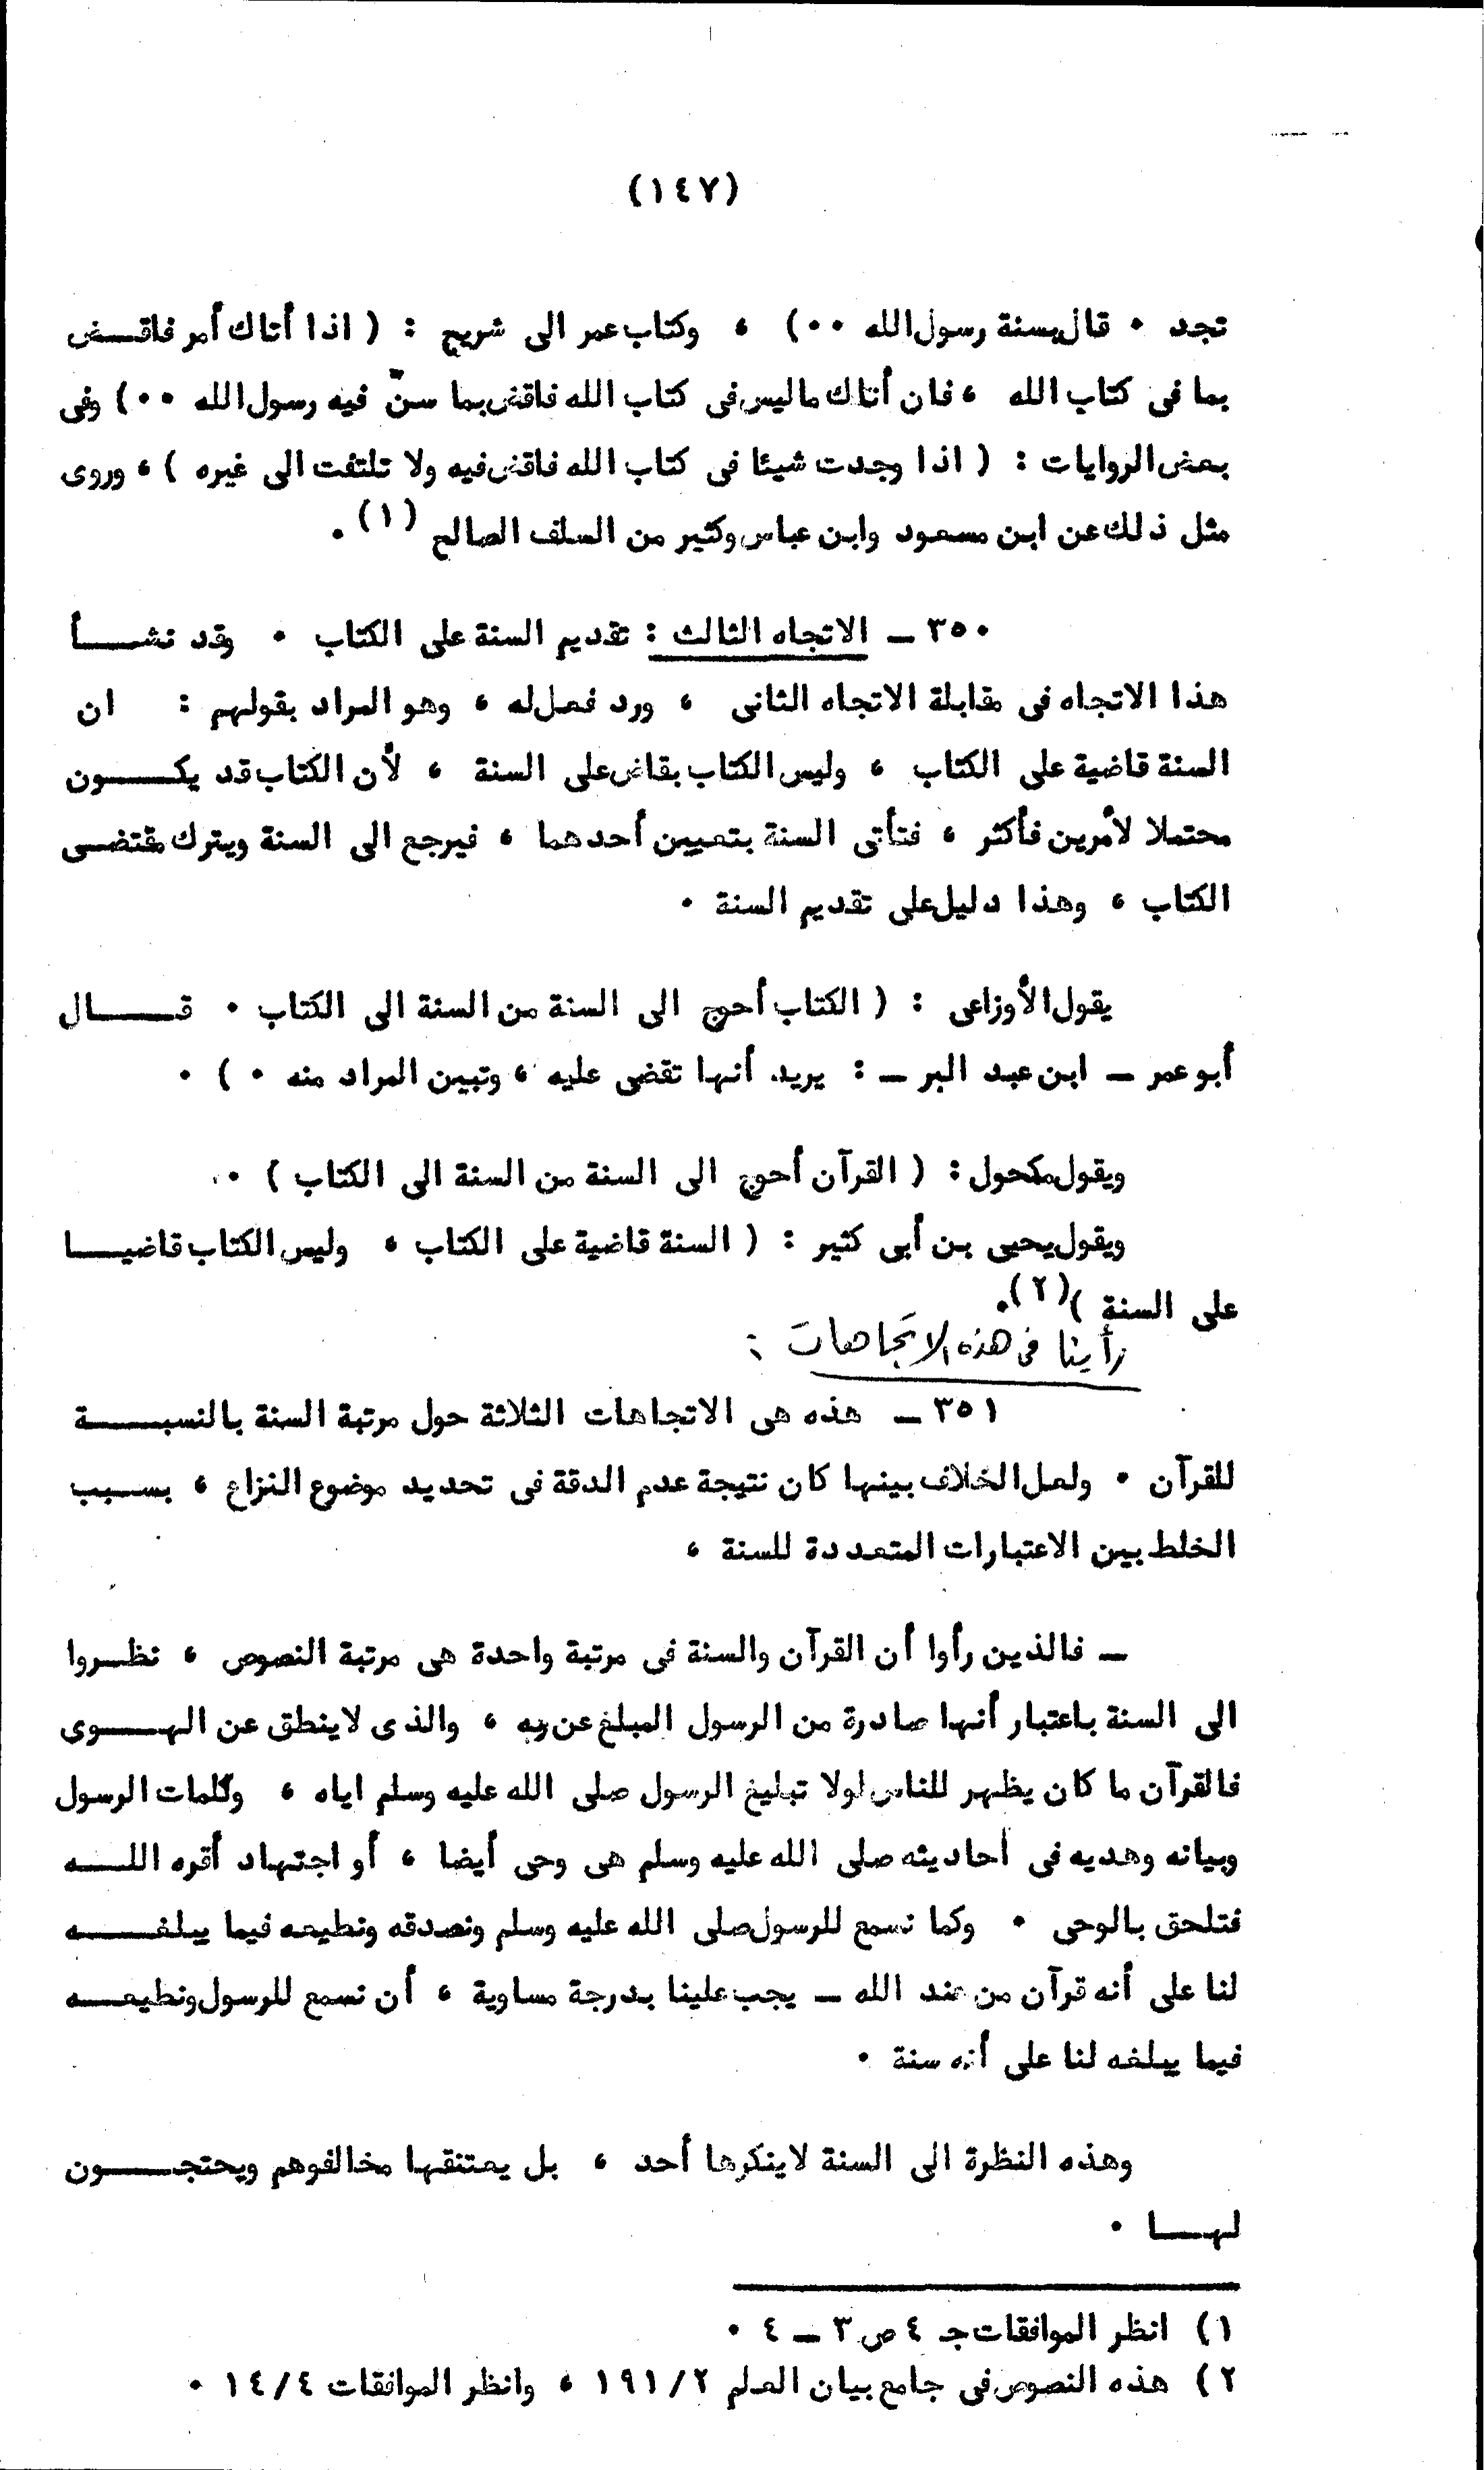 (١٤٧)
تجد ٠ قال بسنة رسول الله ٠٠) ، وكتاب عمر الى شريح : ( اذا أتاك أمر فاقـــض
بما فى كتاب الله ، فان أتاك ماليس فى كتاب الله فاقض بما سنّ فيه رسول الله ٠٠) وفى
بعض الروايات : ( اذا وجدت شيئا فى كتاب الله فاقض فيه ولا تلتفت الى غيره ) ، وروى
مثل ذلك عن ابن مسعود وابن عباس وكثير من السلف الصالح (١) ٠
٣٥٠ ـ الاتجاه الثالث : تقديم السنة على الكتاب ٠ وقد نشـــأ
هذا الاتجاه فى مقابلة الاتجاه الثانى ، ورد فعل له ، وهو المراد بقولهم : ان
السنة قاضية على الكتاب ، وليس الكتاب بقاض على السنة ، لأن الكتاب قد يكـــون
محتملا لأمرين فأكثر ، فتأتى السنة بتعيين أحدهما ، فيرجع الى السنة ويترك مقتضــى
الكتاب ، وهذا دليل على تقديم السنة ٠
يقول الأوزاعى : ( الكتاب أحوج الى السنة من السنة الى الكتاب ٠ قـــــال
أبو عمر ـ ابن عبد البر ـ : يريد أنها تقضى عليه ، وتبين المراد منه ٠ ) ٠
ويقول مكحول : ( القرآن أحوج الى السنة من السنة الى الكتاب ) ٠
ويقول يحيى بن أبى كثير : ( السنة قاضية على الكتاب ، وليس الكتاب قاضيـــا
على السنة )(٢)٠
رأينا فى هذه الاتجاهات :
٣٥١ ـ هذه هى الاتجاهات الثلاثة حول مرتبة السنة بالنسبـــــة
للقرآن ٠ ولعل الخلاف بينها كان نتيجة عدم الدقة فى تحديد موضوع النزاع ، بســبب
الخلط بين الاعتبارات المتعددة للسنة ،
ـ فالذين رأوا أن القرآن والسنة فى مرتبة واحدة هى مرتبة النصوص ، نظــروا
الى السنة باعتبار أنها صادرة من الرسول المبلغ عن ربه ، والذى لاينطق عن الهـــوى
فالقرآن ما كان يظهر للناس لولا تبليغ الرسول صلى الله عليه وسلم اياه ، وكلمات الرسول
وبيانه وهديه فى أحاديثه صلى الله عليه وسلم هى وحى أيضا ، أو اجتهاد أقره اللــــه
فتلحق بالوحى ٠ وكما نسمع للرسول صلى الله عليه وسلم ونصدقه ونطيعه فيما يبلغـــــه
لنا على أنه قرآن من عند الله ـ يجب علينا بدرجة مساوية ، أن نسمع للرسول ونطيعـــه
فيما يبلغه لنا على أنه سنة ٠
وهذه النظرة الى السنة لاينكرها أحد ، بل يعتنقها مخالفوهم ويحتجــــون
لهـــا ٠
١) انظر الموافقات جـ ٤ ص ٣ ـ ٤ ٠
٢) هذه النصوص فى جامع بيان العلم ١٩١/٢ ، وانظر الموافقات ١٤/٤ ٠